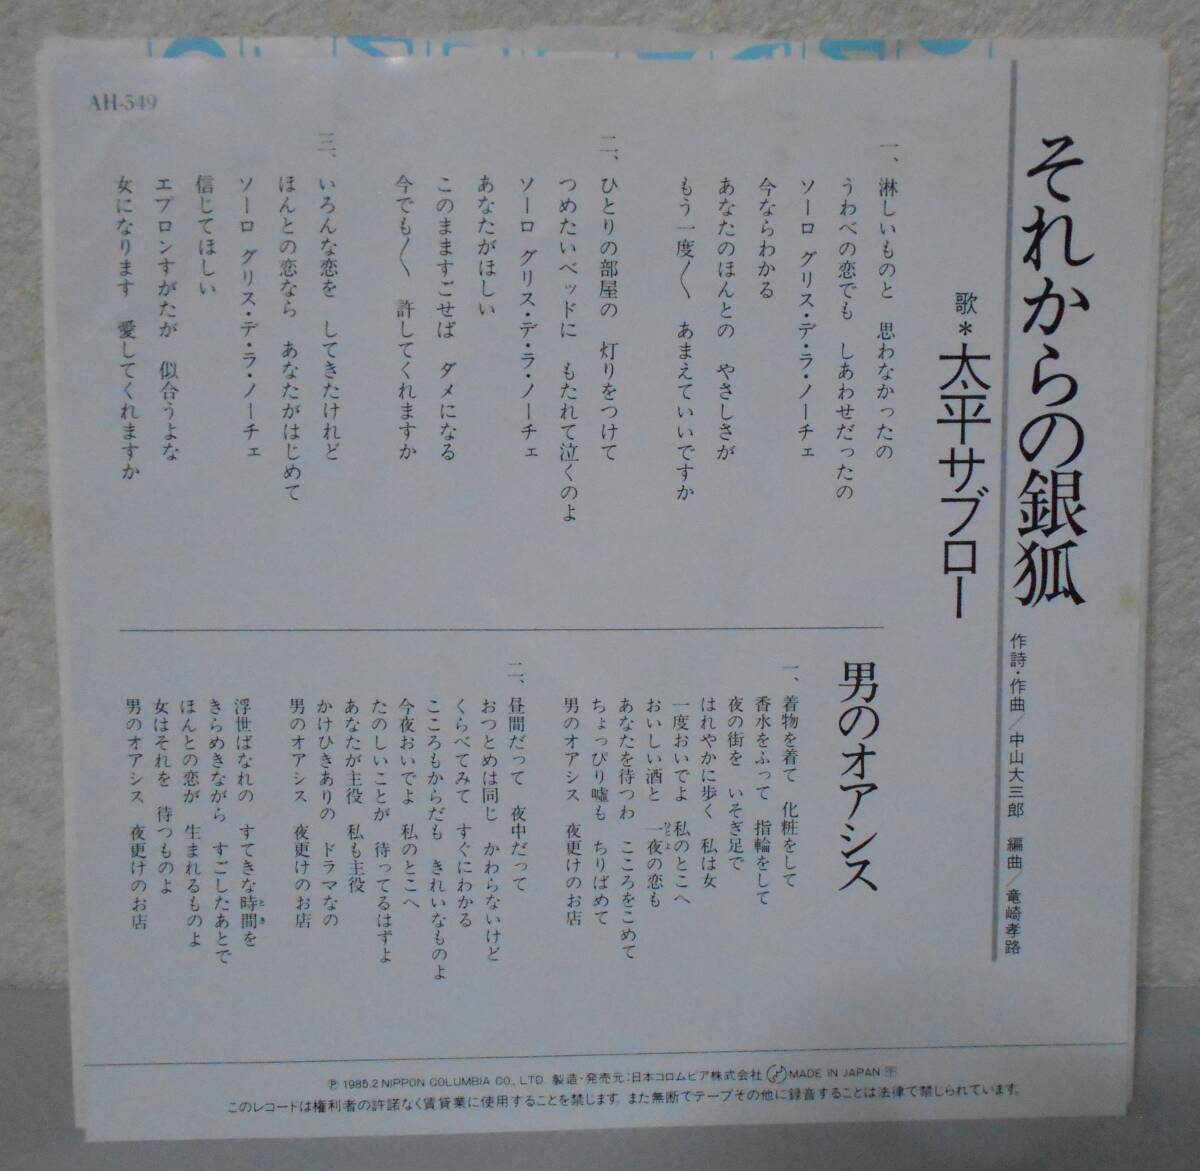 AH-549
それからの銀狐
作詩・作曲／中山大三郎　編曲／竜崎孝路
歌＊太平サブロー
一、淋しいものと　思わなかったの
うわべの恋でも　しあわせだったの
ソーロ　グリス・デ・ラ・ノーチェ
今ならわかる
あなたのほんとの　やさしさが
もう一度〱　あまえていいですか
二、ひとりの部屋の　灯りをつけて
つめたいベッドに　もたれて泣くのよ
ソーロ　グリス・デ・ラ・ノーチェ
あなたがほしい
このまますごせば　ダメになる
今でも〱　許してくれますか
三、いろんな恋を　してきたけれど
ほんとの恋なら　あなたがはじめて
ソーロ　グリス・デ・ラ・ノーチェ
信じてほしい
エプロンすがたが　似合うよな
女になります　愛してくれますか
男のオアシス
一、着物を着て　化粧をして
香水をふって　指輪をして
夜の街を　いそぎ足で
はれやかに歩く　私は女
一度おいでよ　私のとこへ
おいしい酒と　一夜の恋も
あなたを待つわ　こころをこめて
ちょっぴり嘘も　ちりばめて
男のオアシス　夜更けのお店
二、昼間だって　夜中だって
おつとめは同じ　かわらないけど
くらべてみて　すぐにわかる
こころもからだも　きれいなものよ
今夜おいでよ　私のとこへ
たのしいことが　待ってるはずよ
あなたが主役　私も主役
かけひきありの　ドラマなの
男のオアシス　夜更けのお店
浮世ばなれの　すてきな時間を
きらめきながら　すごしたあとで
ほんとの恋が　生まれるものよ
女はそれを　待つものよ
男のオアシス　夜更けのお店
Ⓟ 1985.2 NIPPON COLUMBIA CO., LTD. 製造・発売元：日本コロムビア株式会社 MADE IN JAPAN
このレコードは権利者の許諾なく賃貸業に使用することを禁じます。また無断でテープその他に録音することは法律で禁じられています。